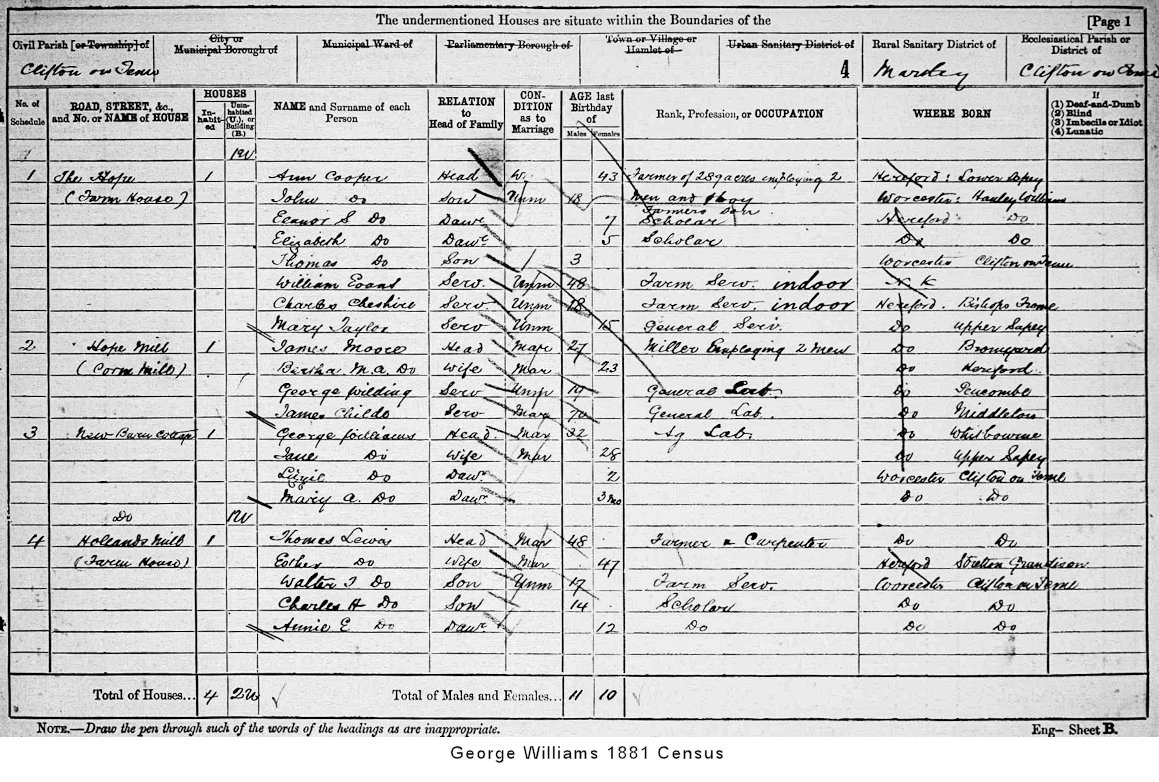 The undermentioned Houses are situate within the Boundaries of the [Page 1
Civil Parish [or Township] of City or Municipal Borough of Municipal Ward of Parliamentary Borough of Town or Village or Hamlet of Urban Sanitary District of Rural Sanitary District of Ecclesiastical Parish or District of
Clifton on Teme 4 Martley Clifton on Teme
No. of Schedule ROAD, STREET, &c., and No. or NAME of HOUSE HOUSES Inhabited Uninhabited (U.), or Building (B.) NAME and Surname of each Person RELATION to Head of Family CONDITION as to Marriage AGE last Birthday of Males Females Rank, Profession, or OCCUPATION WHERE BORN If (1) Deaf-and-Dumb (2) Blind (3) Imbecile or Idiot (4) Lunatic
1 The Hope 1 Ann Cooper Head W. 43 Farmer of 289 acres employing 2 Hereford: Lower Sapey
(Farm House) John Do Son Unm 18 men and 1 boy Worcester: Hanley William
Farmers Son
Eleanor S Do Dawr 7 Scholar Hereford: Do
Elizabeth Do Dawr 5 Scholar Do Do
Thomas Do Son 3 Worcester Clifton on Teme
William Evans Serv. Unm 48 Farm Serv. indoor N. K
Charles Cheshire Serv. Unm 18 Farm Serv. indoor Hereford. Bishops Frome
Mary Taylor Serv Unm 15 General Serv. Do Upper Sapey
2 Hope Mill 1 James Moore Head Mar 27 Miller Employing 2 Men Do Bromyard
(Corn Mill) Bertha M. A. Do Wife Mar 23 Do Hereford.
George Wilding Serv Unm 19 General Lab. Do Pencombe
James Childs Serv Mar 70 General Lab. Do Middleton
3 New Barn Cottage 1 George Williams Head. Mar 32 Ag Lab. Do Whitbourne
Jane Do Wife Mar 28 Do Upper Sapey
Lizzie Do Dawr 2 Worcester Clifton on Teme
Mary A. Do Dawr 3 mo Do Do
Do
4 Hollands Mill 1 Thomas Lewis Head Mar 48 Farmer & Carpenter Do Do
(Farm House) Esther Do Wife Mar 47 Hereford Stretton Grandison
Walter J Do Son Unm 17 Farm Serv. Worcester Clifton on Teme
Charles H Do Son 14 Scholar Do Do
Annie E Do Dawr 12 Do Do Do
Total of Houses... 4 2U Total of Males and Females... 11 10
NOTE.—Draw the pen through such of the words of the headings as are inappropriate. Eng– Sheet B.
George Williams 1881 Census